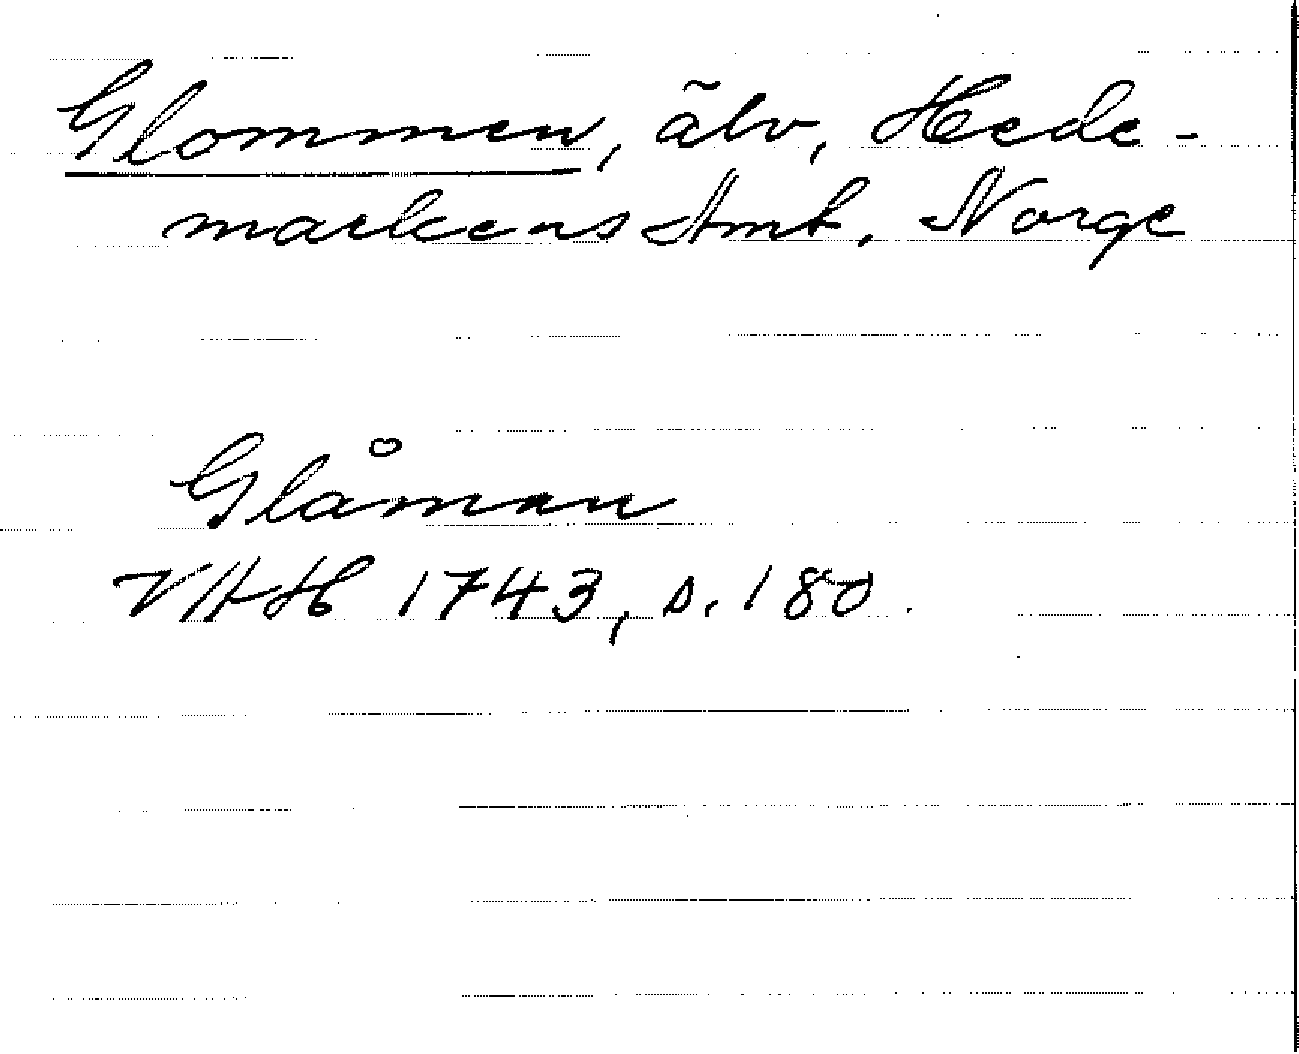 Glommen, älv, Hede-
markens Amt. Norge
Glåman
VHH 1743, s. 180.